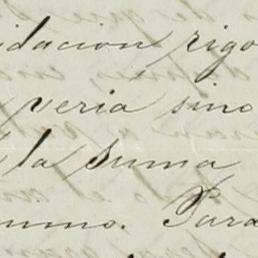 idacion rigo
veria sino
la suma
umo. Para